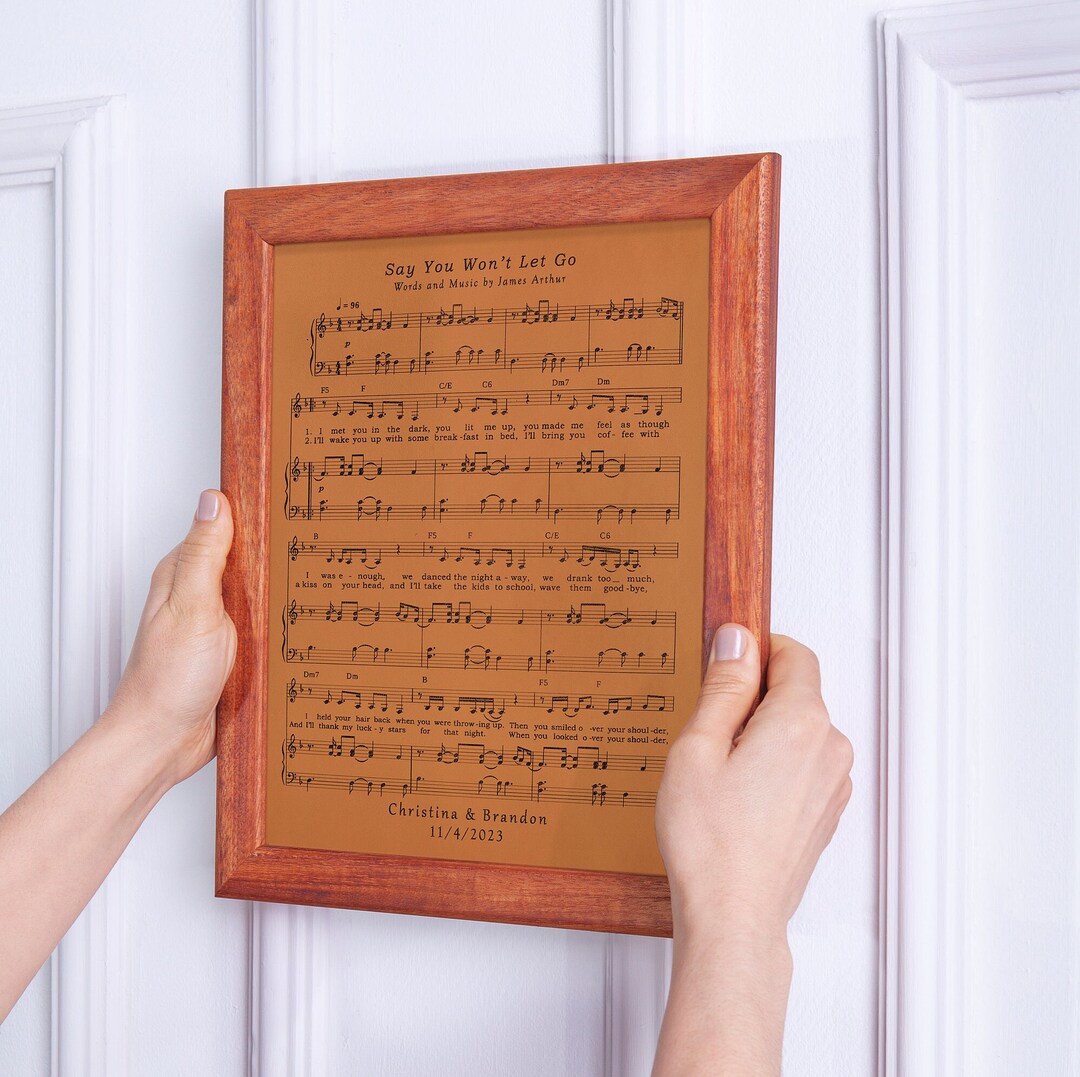 Say You Won't Let Go
Words and Music by James Arthur
♩ = 96
p
F5 F C/E C6 Dm7 Dm
1. I met you in the dark, you lit me up, you made me feel as though
2. I'll wake you up with some break-fast in bed, I'll bring you cof- fee with
p
B F5 F C/E C6
I was e - nough, we danced the night a - way, we drank too__ much,
a kiss on your head, and I'll take the kids to school, wave them good -bye,
Dm7 Dm B F5 F
I held your hair back when you were throw -ing up. Then you smiled o -ver your shoul -der,
And I'll thank my luck - y stars for that night. When you looked o -ver your shoul -der,
Christina & Brandon
11/4/2023